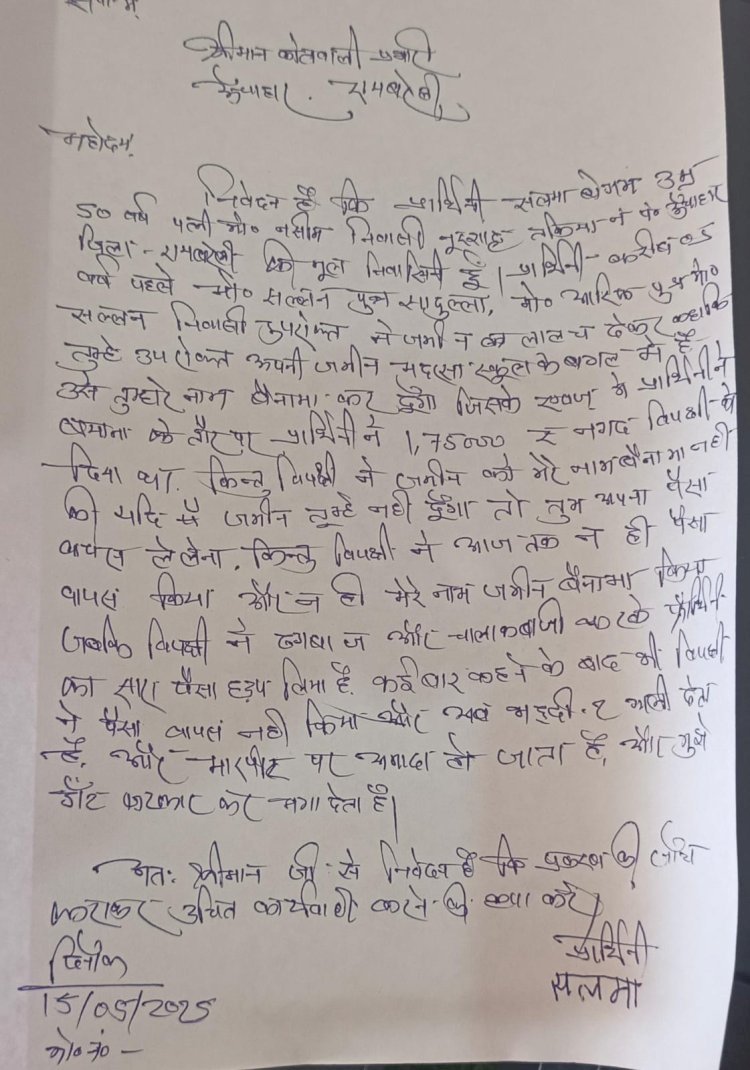 सेवा में,
श्रीमान कोतवाली प्रभारी
ऊँचाहार, रायबरेली
महोदय,
निवेदन है कि प्रार्थिनी सलमा बेगम उम्र
50 वर्ष पत्नी मो० नसीम निवासी नूरशाह तकिया नं पो० ऊँचाहार
जिला - रायबरेली की मूल निवासिनी हूँ। प्रार्थिनी करीब 05
वर्ष पहले मो० सल्लन पुत्र सादुल्ला, मो० आरिफ पुत्र मो०
सल्लन निवासी उपरोक्त ने जमीन का लालच देकर कहा कि
तुम्हे उपरोक्त अपनी जमीन मदरसा स्कूल के बगल में है
उसे तुम्हारे नाम बैनामा कर दूँगा जिसके एवज में प्रार्थिनी ने
बयाना के तौर पर प्रार्थिनी ने 1,75000 रू नगद विपक्षी को
दिया था. किन्तु विपक्षी ने जमीन को मेरे नाम बैनामा नही
की यदि मैं जमीन तुम्हे नही दूँगा तो तुम अपना पैसा
वापस ले लेना, किन्तु विपक्षी ने आज तक न ही पैसा
वापस किया और न ही मेरे नाम जमीन बैनामा किया
जबकि विपक्षी ने दगाबाज और चालाकबाजी करके प्रार्थिनी
का सारा पैसा हड़प लिया है. कई बार कहने के बाद भी विपक्षी
ने पैसा वापस नही किया और अब भद्दी-2 गाली देता
है, और मारपीट पर अमादा हो जाता है, और मुझे
डाँट फटकार कर भगा देता है।
अतः श्रीमान जी से निवेदन है कि प्रकरण की जाँच
कराकर उचित कार्यवाही करने की कृपा करें।
प्रार्थिनी
सलमा
दिनाँक
15/05/2025
मो० नं० -